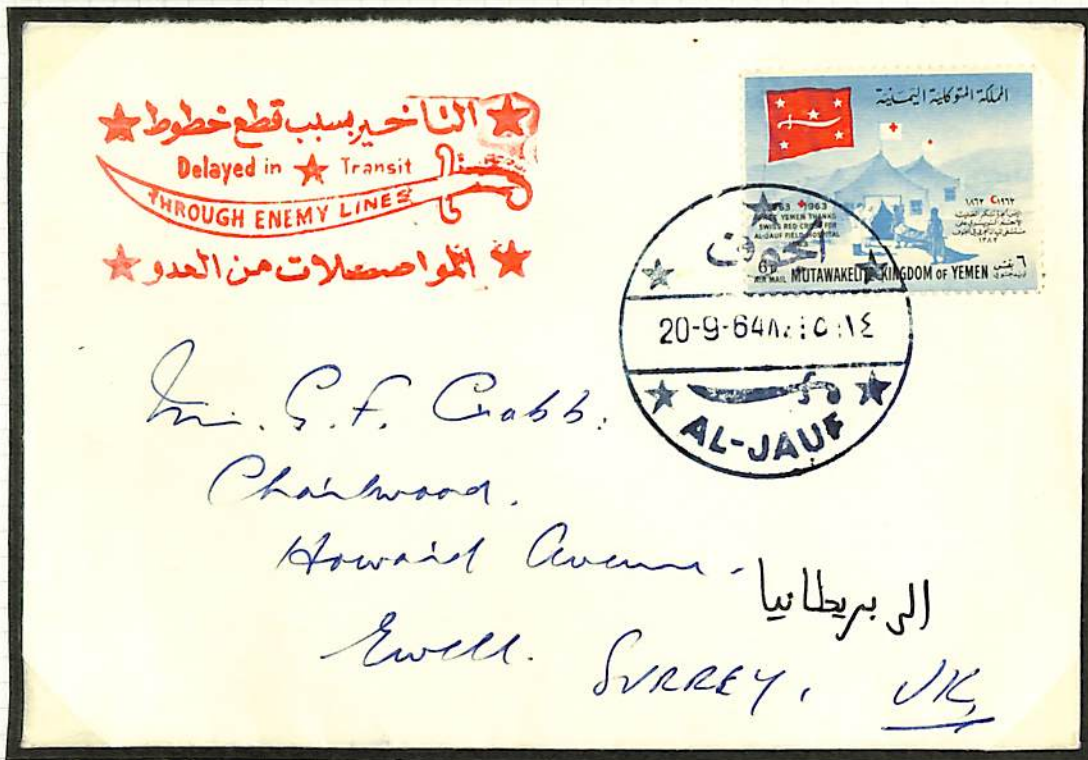 التأخير بسبب قطع خطوط
Delayed in Transit
THROUGH ENEMY LINES
المواصلات من العدو
المملكة المتوكلية اليمنية
1863 1963
١٩٦٣ ١٨٦٣
YEMEN THANKS
SWISS RED CROSS FOR
AL-JAUF FIELD HOSPITAL
١٣٨٢
6
AIR MAIL
MUTAWAKELITE KINGDOM OF YEMEN
٦ بقش
الجوف
20-9-64
AL-JAUF
Mr. G. F. Crabb.
Charlwood.
Howard Avenue.
Ewell.
SURREY, UK,
الى بريطانيا